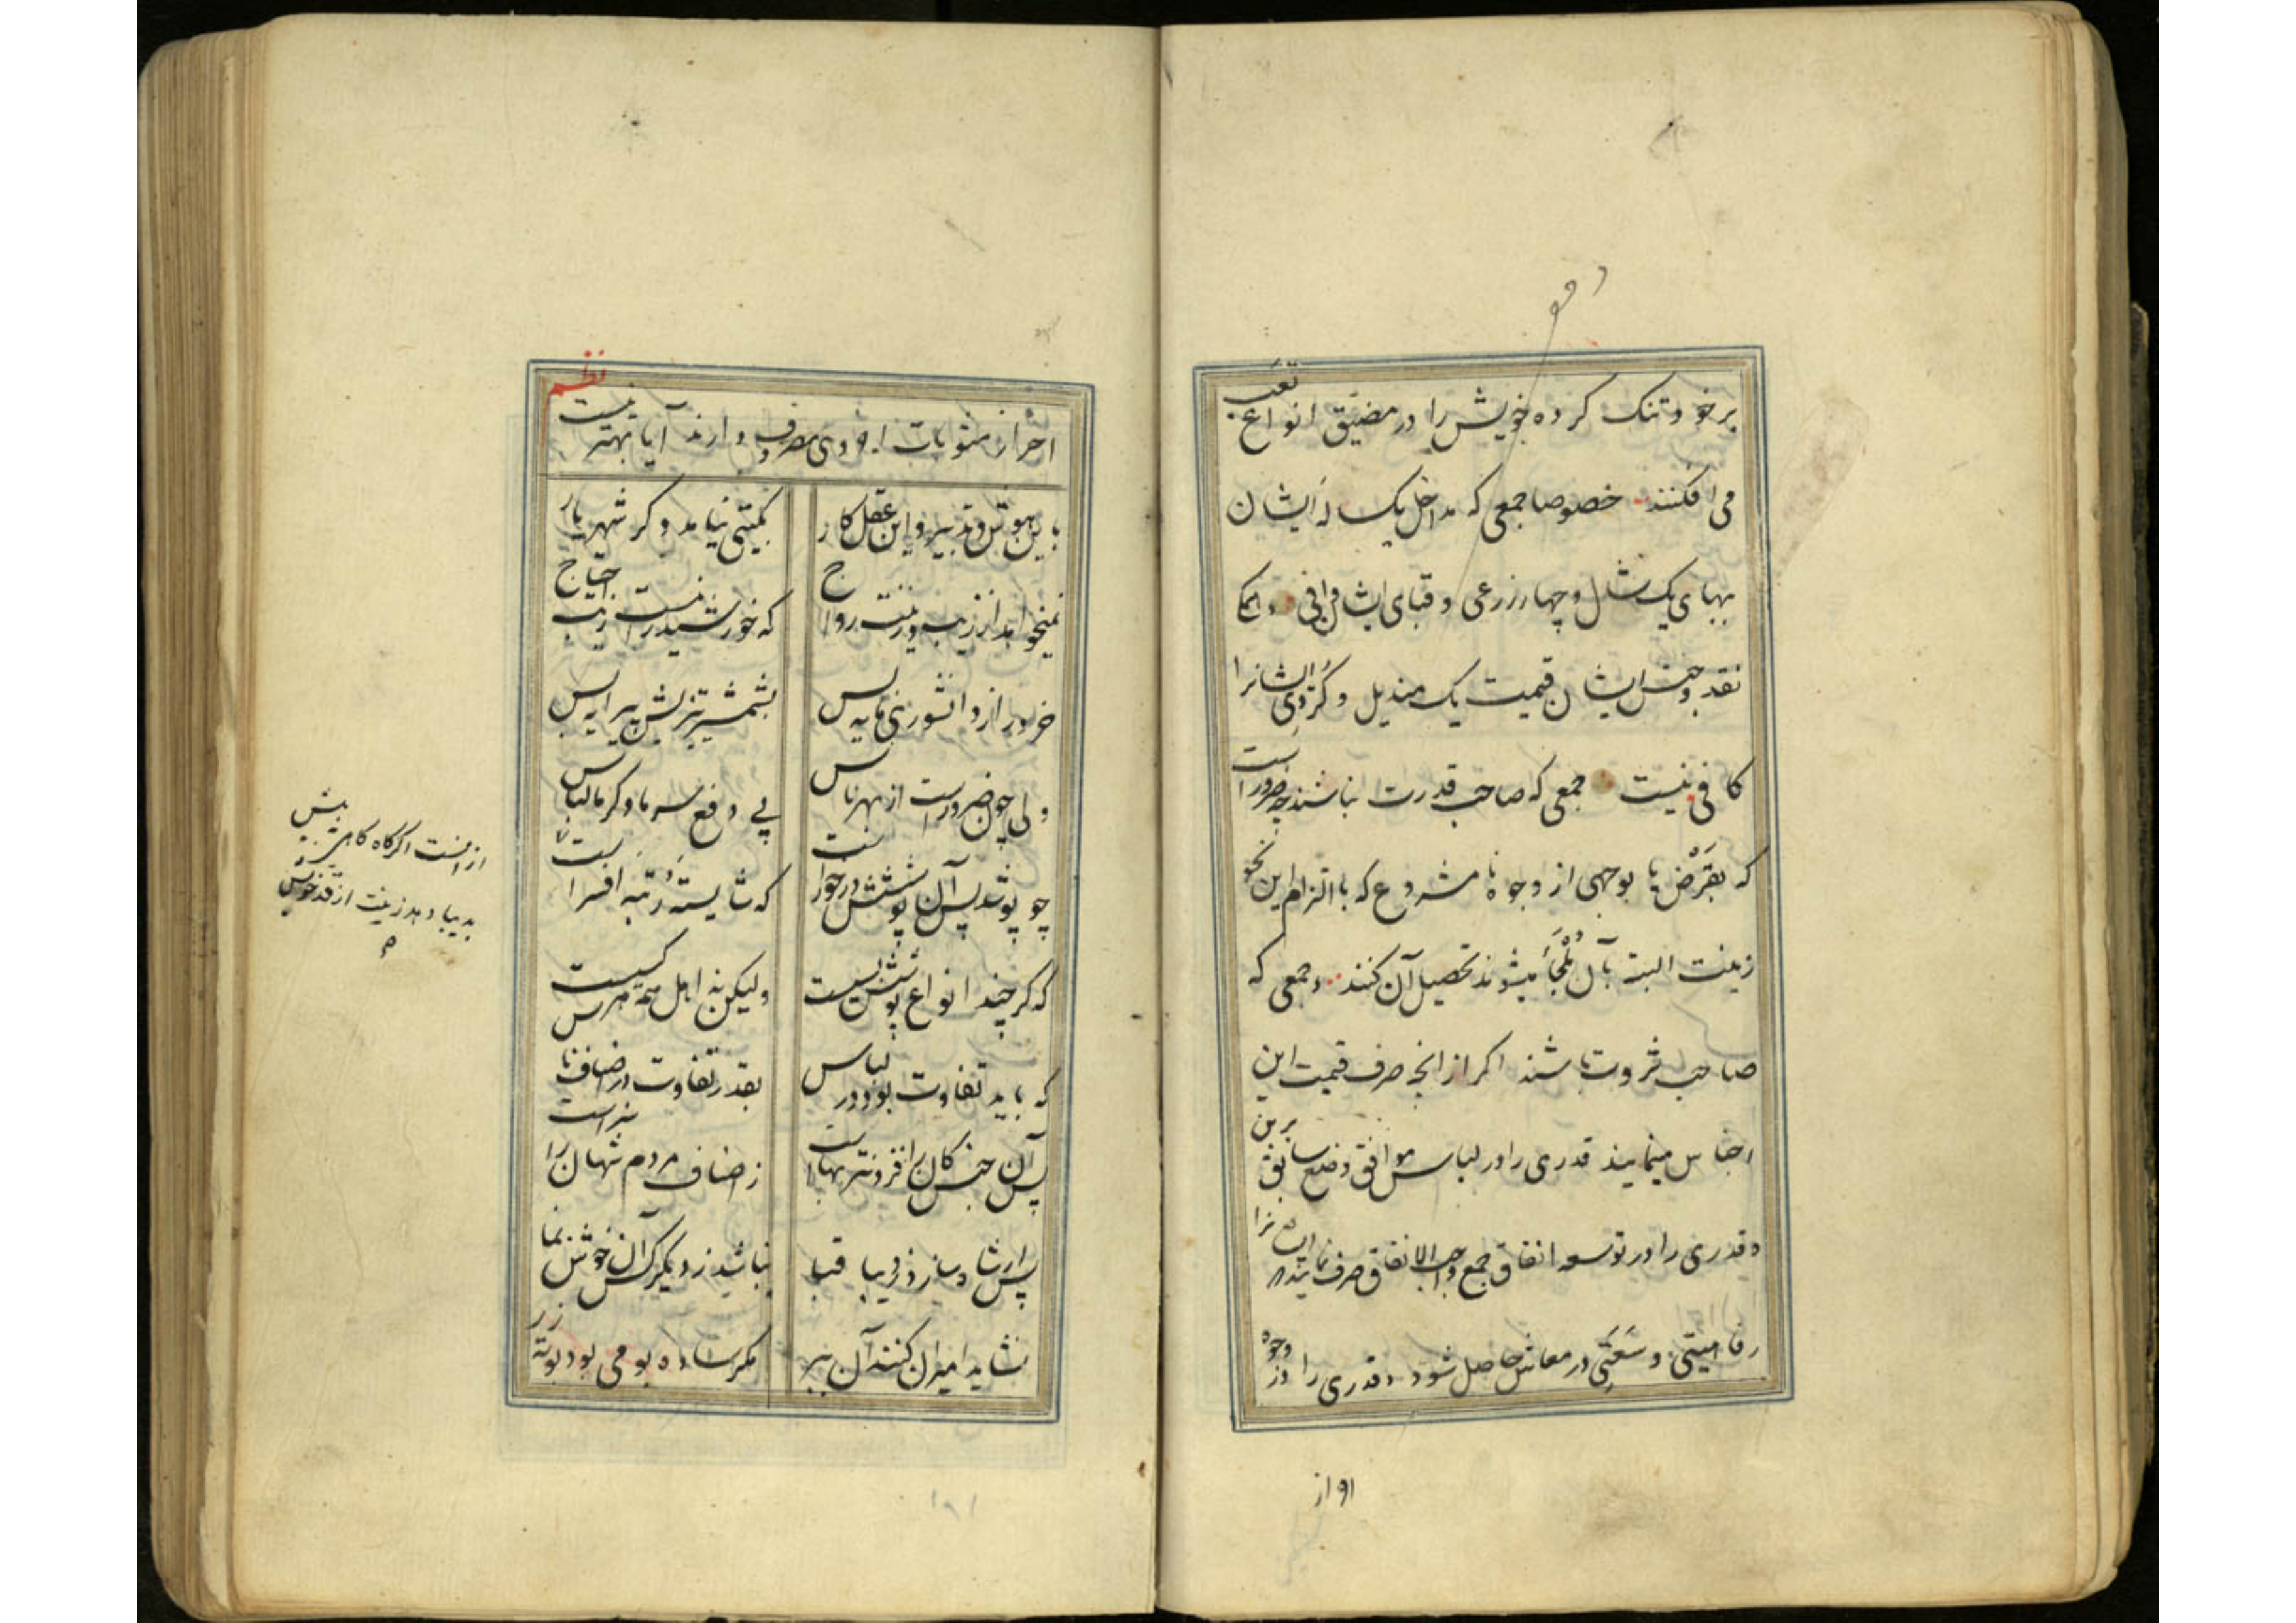 بر خود تنک کرده خویش را در مضیق انواع تعب
می افکنند خصوصا جمعی که مداخل یک ساله ایشان
بهبای یک شال و چهار زرعی و قبای ایشان وافی و
نقد و جنس ایشان قیمت یک مندیل و کُردی ایشانرا
کافی نیست جمعی که صاحب قدرت نباشند چه ضرور است
که بقرض یا بوجهی از وجوه نامشروع که با التزام این نحو
زینت البته بآن مُلْجَأ میشوند تحصیل آن کنند و جمعی که
صاحب ثروت باشند اکر از انچه صرف قیمت این
اجناس مینمایند قدری را در لباس موافق وضع سابق برین
و قدری را در توسعه انفاق جمع واجب الانفاق صرف نمایند
رفاهیتی و سَعَتی در معاش حاصل شود و قدری را در وجوه
احراز مثوبات اخروی مصروف دارند آیا بهتر نیست
نظم
باین هوش و تدبیر و این عقل کار
بکیتی نیامد دکر شهریار
نمیخواهد از زیب و زینت رواج
که خورشید را نیست زیب احتیاج
خرد راز دانشوری مایه بس
بشمشیر تیزیش پیرایه بس
ولی چون ضرور است از بهر ناس
پی دفع سرما و کرما لباس
چو پوشد پس آن پوشش در خور است
که شایسته رُتبه افسر است
که کر چند انواع پوشش بسیست
ولیکن نه اهل همه هر کسیست
که باید تفاوت بود در لباس
بقدر تفاوت در اصناف ناس
پس آن جنس کان را فزونتر بهاست
ز اصناف مردم شهان را سزاست
پس ار شاه سازد ز دیبا قبا
نباشد ز دیکر کس آن خوش نما
نشاید امیران کنند آن ببر
مکر ساده بومی بود بوته زر
بدیبا دهد زینت از قد خویش
اواز